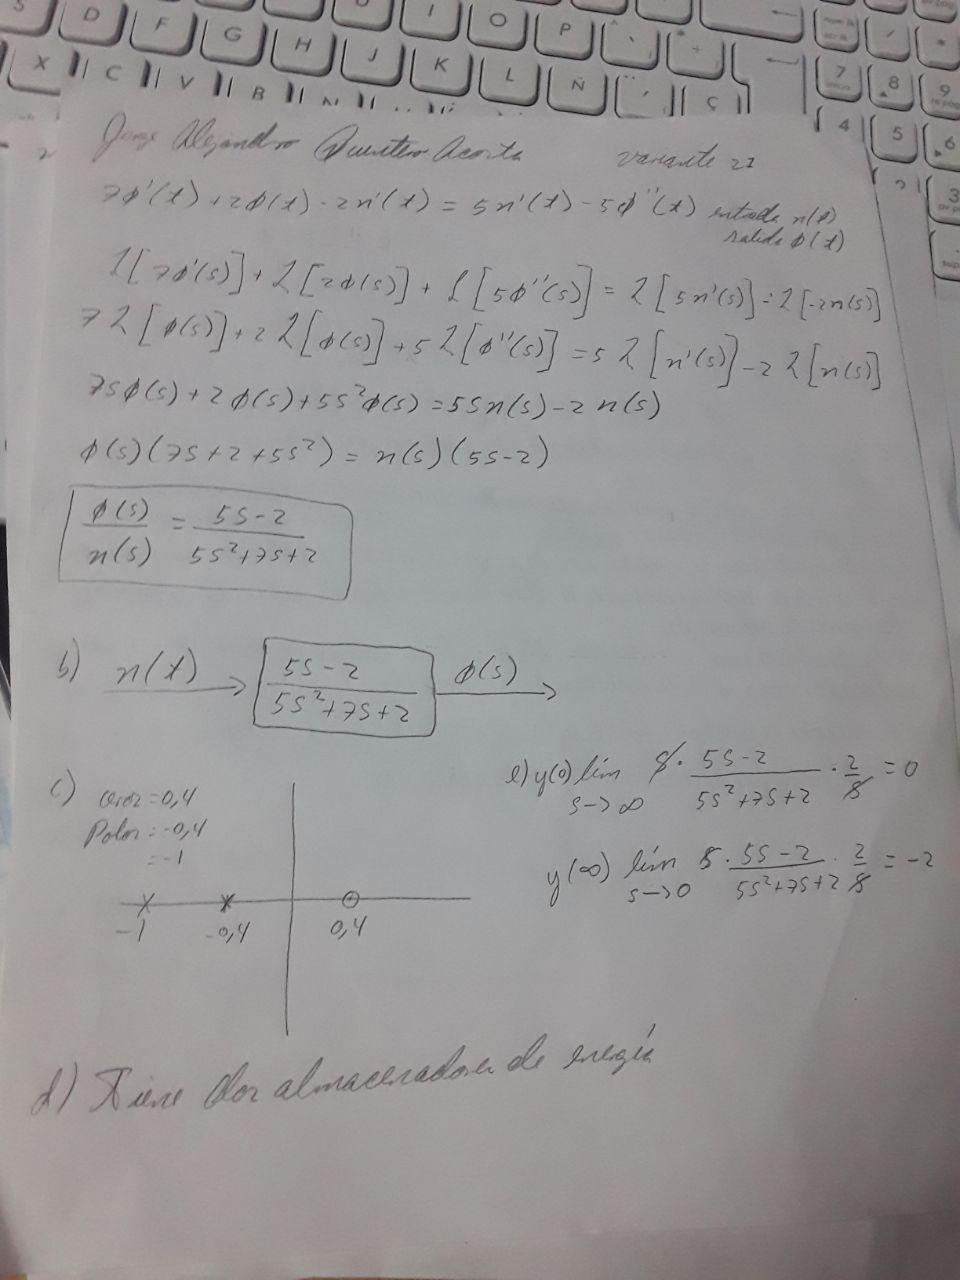 S D F G H I O P
X C V B J K L Ñ Ç
7 8 9
4 5 6
3
Jorge Alejandro Quintero Acosta variante 21
7φ'(t) + 2φ(t) - 2n'(t) = 5n'(t) - 5φ''(t) entrada n(t)
salida φ(t)
L[7φ'(s)] + L[2φ(s)] + L[5φ''(s)] = L[5n'(s)] - L[-2n(s)]
7L[φ(s)] + 2L[φ(s)] + 5L[φ''(s)] = 5L[n'(s)] - 2L[n(s)]
7Sφ(s) + 2φ(s) + 5S²φ(s) = 5Sn(s) - 2n(s)
φ(s)(7S + 2 + 5S²) = n(s)(5S - 2)
φ(s)/n(s) = 5S - 2/5S² + 7S + 2
b) n(t) 5S - 2/5S² + 7S + 2 φ(s)
c) Ceros = 0,4
Polos = -0,4
= -1
-1 -0,4 0,4
e) y(o) lím s->∞ S · 5S - 2/5S² + 7S + 2 · 2/S = 0
y(∞) lím s->0 S · 5S - 2/5S² + 7S + 2 · 2/S = -2
d) Tiene dos almacenadores de energía